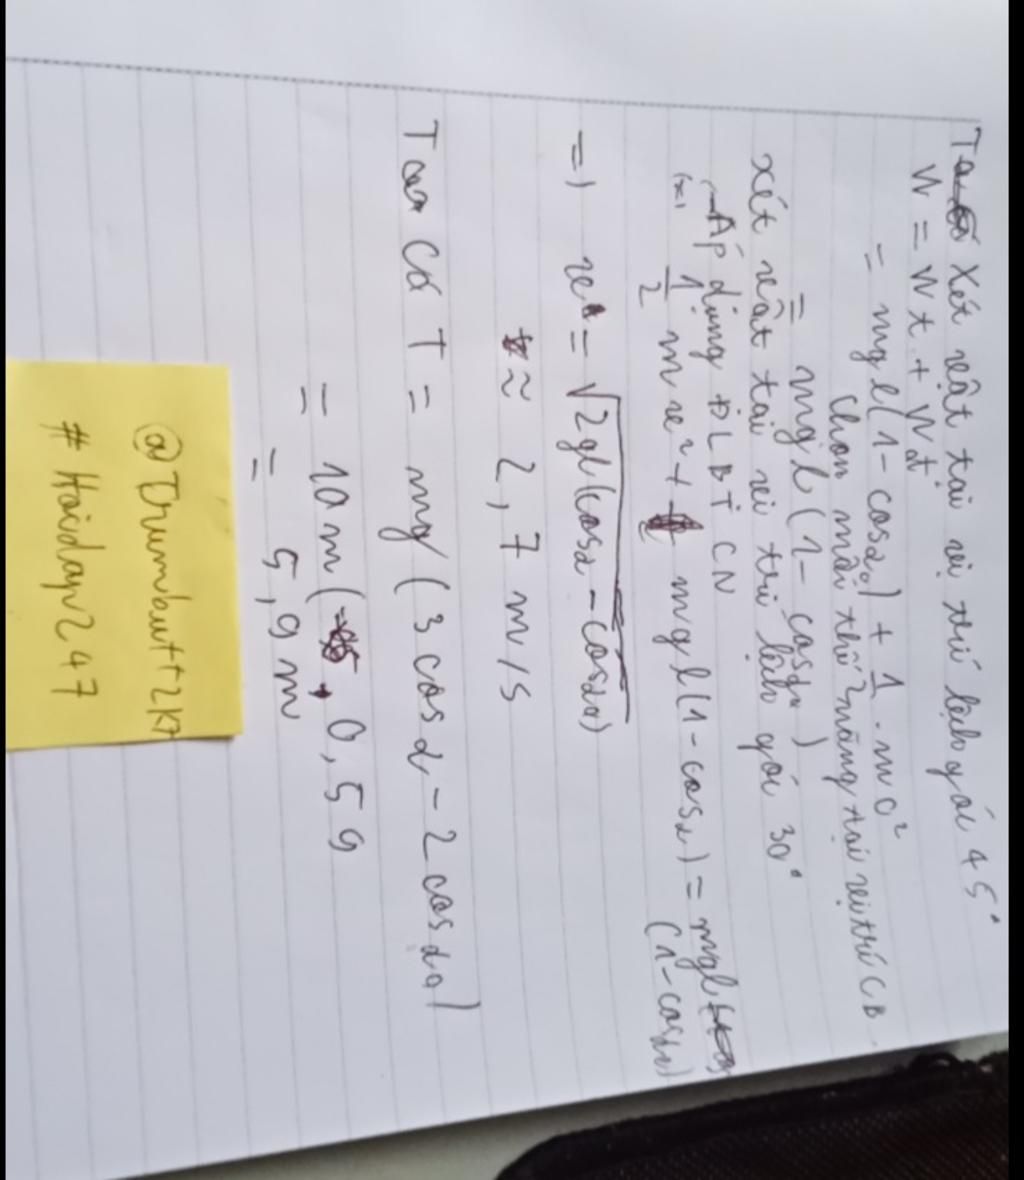 Xét vật tại vị trí lệch góc 45°
W = Wt + Wđ
= mgl(1 - cosα₀) + 1/2 . m0²
Chọn mốc thế năng tại vị trí CB
= mgl (1 - cosα₀)
Xét vật tại vị trí lệch góc 30°
- Áp dụng ĐLBTCN
(=) 1/2 mv² + mgl(1 - cosα) = mgl
(1 - cosα₀)
=) v = √2gl(cosα - cosα₀)
≈ 2,7 m/s
Ta có T = mg(3cosα - 2cosα₀)
= 10m( 0,59
= 5,9m
@Trumbutt2k7
#Hoidap247